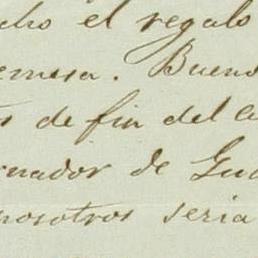 cho el regalo
emesa. Bueno
s de fin del
rnador de Gua
nosotros seria